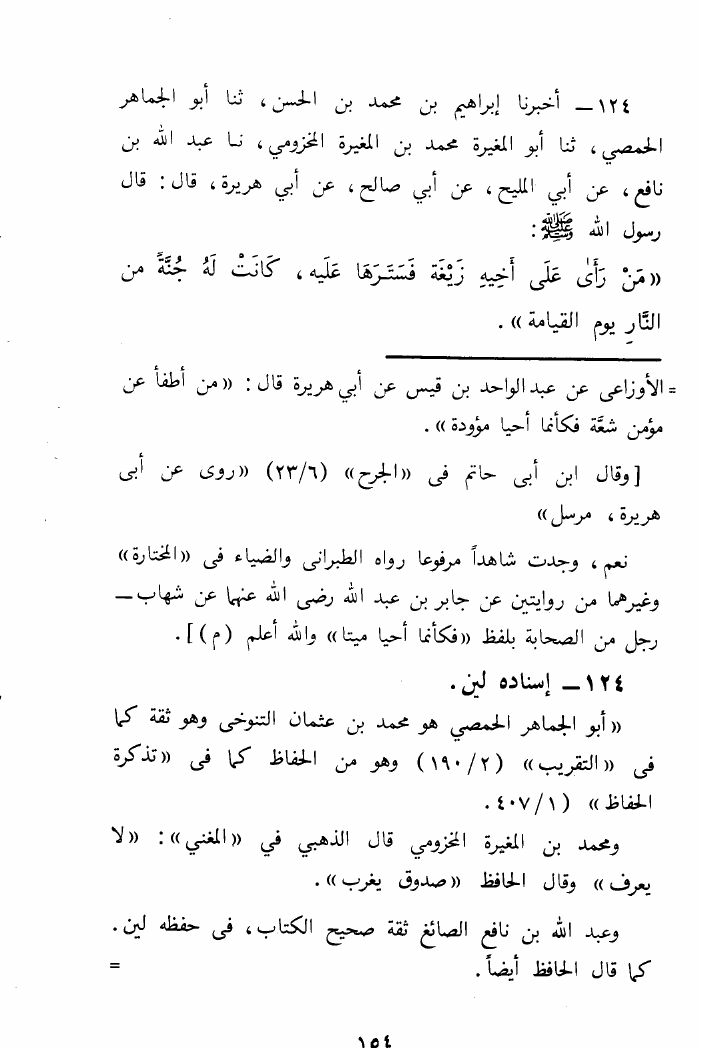 ١٢٤ – أخبرنا إبراهيم بن محمد بن الحسن، ثنا أبو الجماهر
الحمصي، ثنا أبو المغيرة محمد بن المغيرة المخزومي، نا عبد الله بن
نافع، عن أبي المليح، عن أبي صالح، عن أبي هريرة، قال: قال
رسول الله ﷺ:
«مَنْ رَأَىٰ عَلَى أَخِيهِ زَيْغَة فَسَتَرَهَا عَلَيه، كَانَتْ لَهُ جُنَّةً من
النَّارِ يوم القيامة».
= الأوزاعى عن عبد الواحد بن قيس عن أبي هريرة قال: «من أطفأ عن
مؤمن شعَّة فكأنما أحيا مؤودة».
[وقال ابن أبى حاتم فى «الجرح» (٢٣/٦) «روى عن أبى
هريرة، مرسل»
نعم، وجدت شاهداً مرفوعا رواه الطبرانى والضياء فى «المختارة»
وغيرهما من روايتين عن جابر بن عبد الله رضى الله عنهما عن شهاب –
رجل من الصحابة بلفظ «فكأنما أحيا ميتا» والله أعلم (م)].
١٢٤ – إسناده لين.
«أبو الجماهر الحمصي هو محمد بن عثمان التنوخى وهو ثقة كما
فى «التقريب» (١٩٠/٢) وهو من الحفاظ كما فى «تذكرة
الحفاظ» (٤٠٧/١.
ومحمد بن المغيرة المخزومي قال الذهبي في «المغني»: «لا
يعرف» وقال الحافظ «صدوق يغرب».
وعبد الله بن نافع الصائغ ثقة صحيح الكتاب، فى حفظه لين.
كما قال الحافظ أيضاً. =
١٥٤